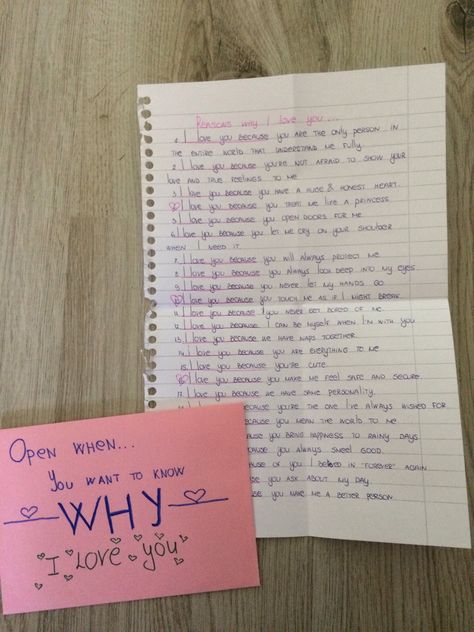 Reasons why I love you...
1. I love you because you are the only person in
the entire world that understand me fully.
2. I love you because you're not afraid to show your
love and true feelings to me
3. I love you because you have a huge & honest heart.
I love you because you treat me like a princess
5. I love you because you open doors for me
6. I love you because you let me cry on your shoulder
when I need it.
7. I love you because you will always protect me
8. I love you because you always look deep into my eyes
9. I love you because you never let my hands go
I love you because you touch me as if I might break
11. I love you because you never get bored of me
12. I love you because I can be myself when I'm with you
13. I love you because we have naps together
14. I love you because you are everything to me
15. I love you because you're cute.
I love you because you make me feel safe and secure
I love you because we have same personality.
because you're the one I've always wished for
because you mean the world to me
because you bring happiness to rainy days
because you always smell good.
because of you I believed in "forever" again
se you ask about my day.
se you make me a better person.
Open when...
you want to know
WHY
I love you